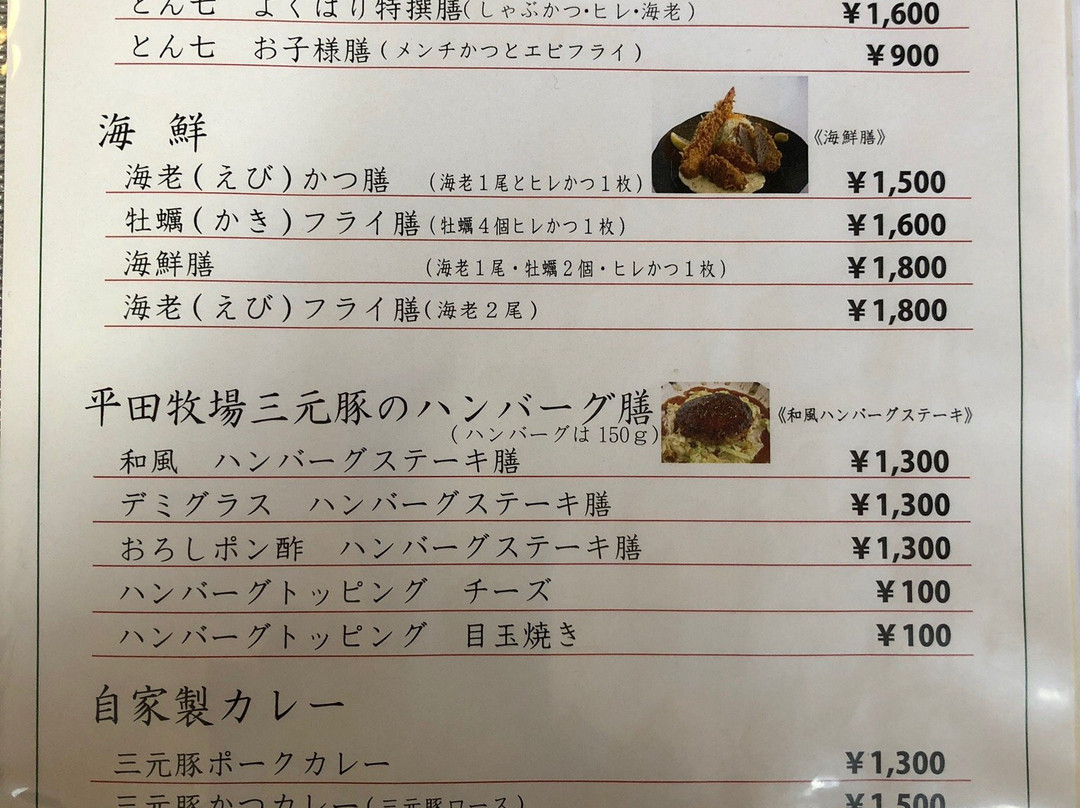 とん七　よくばり特撰膳(しゃぶかつ・ヒレ・海老) ¥1,600
とん七　お子様膳(メンチかつとエビフライ) ¥900
海 鮮
《海鮮膳》
海老(えび)かつ膳　(海老1尾とヒレかつ1枚) ¥1,500
牡蠣(かき)フライ膳(牡蠣4個ヒレかつ1枚) ¥1,600
海鮮膳　(海老1尾・牡蠣2個・ヒレかつ1枚) ¥1,800
海老(えび)フライ膳(海老2尾) ¥1,800
平田牧場三元豚のハンバーグ膳
《和風ハンバーグステーキ》
(ハンバーグは150g)
和風　ハンバーグステーキ膳 ¥1,300
デミグラス　ハンバーグステーキ膳 ¥1,300
おろしポン酢　ハンバーグステーキ膳 ¥1,300
ハンバーグトッピング　チーズ ¥100
ハンバーグトッピング　目玉焼き ¥100
自家製カレー
三元豚ポークカレー ¥1,300
三元豚かつカレー(三元豚ロース) ¥1,500